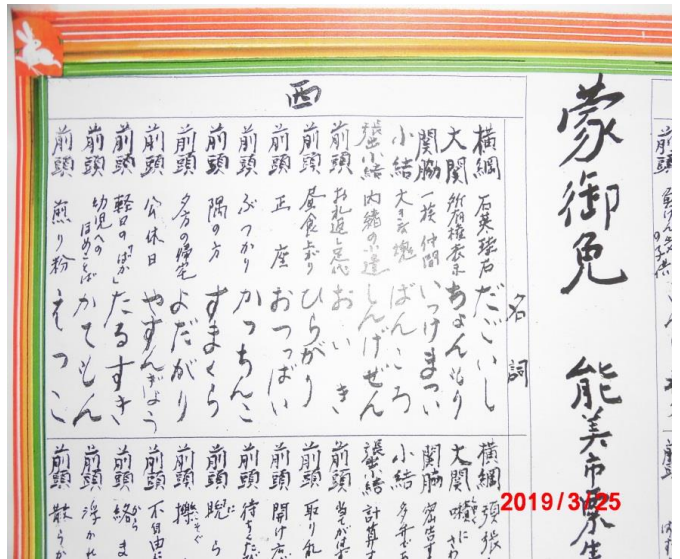 蒙御免 能美市
西
名詞
横綱 石英珪石 だごいし
大関 所有権表示 ちょんもり
関脇 一族 仲間 いっけまつい
小結 大きな塊 ばんころ
張出小結 内緒の小遣 しんげぜん
前頭 お礼返し おいき
前頭 昼食上がり ひらがり
前頭 正座 おつっぱい
前頭 ぶつかり かっちんこ
前頭 隅の方 すまくら
前頭 夕方の帰宅 よだがり
前頭 公休日 やすんぎょう
前頭 軽口の「ばか」 たるすき
前頭 幼児へのほめことば かてもん
前頭 煎り粉 えっこ
横綱 頑張
大関
関脇
小結
張出小結 計算
前頭
前頭 取り
前頭 開け
前頭 待ち
前頭 睨ら
前頭
前頭 不自由
前頭 絡ま
前頭 浮かれ
前頭 散らか
2019/3/25